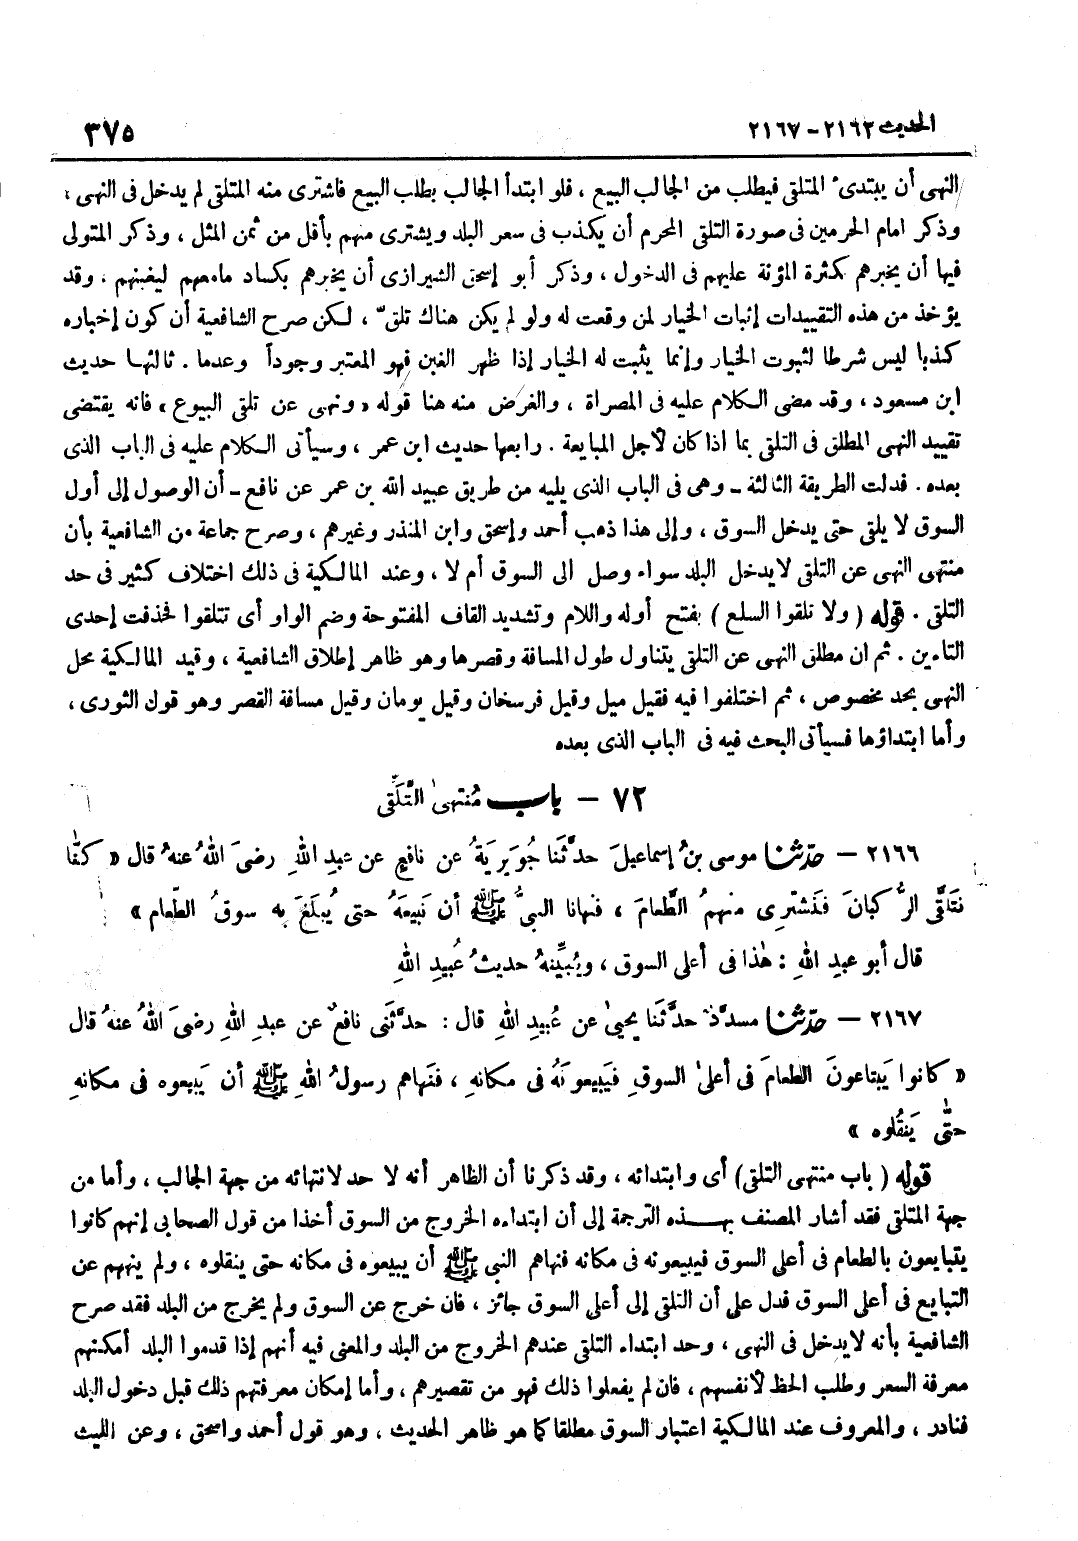 الحديث ٢١٦٢ - ٢١٦٧
٣٧٥
النهى أن يبتدئ المتلقى فيطلب من الجالب البيع ، فلو ابتدأ الجالب بطلب البيع فاشترى منه المتلقى لم يدخل فى النهى ،
وذكر امام الحرمين فى صورة التلقى المحرم أن يكذب فى سعر البلد ويشترى منهم بأقل من ثمن المثل ، وذكر المتولى
فيها أن يخبرهم كثرة المؤنة عليهم فى الدخول ، وذكر أبو إسحق الشيرازى أن يخبرهم بكساد مامعهم ليغبنهم . وقد
يؤخذ من هذه التقييدات إثبات الخيار لمن وقعت له ولو لم يكن هناك تلقّ ، لكن صرح الشافعية أن كون إخباره
كذبا ليس شرطا لثبوت الخيار وإنما يثبت له الخيار إذا ظهر الغبن فهو المعتبر وجوداً وعدما . ثالثها حديث
ابن مسعود ، وقد مضى الكلام عليه فى المصراة ، والغرض منه هنا قوله « ونهى عن تلقى البيوع » فانه يقتضى
تقييد النهى المطلق فى التلقى بما اذا كان لأجل المبايعة . رابعها حديث ابن عمر ، وسيأتى الكلام عليه فى الباب الذى
بعده . فدلت الطريقة الثالثة - وهى فى الباب الذى يليه من طريق عبيد الله بن عمر عن نافع - أن الوصول إلى أول
السوق لا يلقى حتى يدخل السوق ، وإلى هذا ذهب أحمد وإسحق وابن المنذر وغيرهم ، وصرح جماعة من الشافعية بأن
منتهى النهى عن التلقى لايدخل البلد سواء وصل الى السوق أم لا ، وعند المالكية فى ذلك اختلاف كثير فى حد
التلقى . قوله ( ولا تلقوا السلع ) بفتح أوله واللام وتشديد القاف المفتوحة وضم الواو أى تتلقوا فحذفت إحدى
التاءين . ثم ان مطلق النهى عن التلقى يتناول طول المسافة وقصرها وهو ظاهر إطلاق الشافعية ، وقيد المالكية محل
النهى بحد مخصوص ، ثم اختلفوا فيه فقيل ميل وقيل فرسخان وقيل يومان وقيل مسافة القصر وهو قول الثورى ،
وأما ابتداؤها فسيأتى البحث فيه فى الباب الذى بعده
٧٢ - باب مُنتهىٰ التَّلَقِّى
٢١٦٦ - حدّثنا موسى بنُ إسماعيلَ حدَّثَنا جُوَيريَةُ عن نافعٍ عن عبدِ اللهِ رضىَ اللهُ عنهُ قال « كنّا
نَتَلقَّى الرُّكبانَ فنَشترِى منهمُ الطَّعامَ ، فنهانا النبىُّ ﷺ أن نَبيعَهُ حتى يُبلَغَ به سوقُ الطّعام »
قال أبو عبدِ اللهِ : هٰذا فى أعلى السوق ، ويُبيِّنهُ حديثُ عُبيدِ اللهِ
٢١٦٧ - حدّثنا مسدَّدٌ حدَّثَنا يحيىٰ عن عُبيدِ اللهِ قال : حدَّثَنى نافعٌ عن عبدِ اللهِ رضىَ اللهُ عنهُ قال
« كانوا يَبتاعونَ الطعامَ فى أعلىٰ السوقِ فيَبيعونَهُ فى مكانهِ ، فنَهاهم رسولُ اللهِ ﷺ أن يَبيعوه فى مكانهِ
حتّٰى يَنقُلوه »
قوله ( باب منتهى التلقى ) أى وابتدائه ، وقد ذكرنا أن الظاهر أنه لا حد لانتهائه من جهة الجالب ، وأما من
جهة المتلقى فقد أشار المصنف بهذه الترجمة إلى أن ابتداءه الخروج من السوق أخذا من قول الصحابى إنهم كانوا
يتبايعون بالطعام فى أعلى السوق فيبيعونه فى مكانه فنهاهم النبى ﷺ أن يبيعوه فى مكانه حتى ينقلوه ، ولم ينههم عن
التبايع فى أعلى السوق فدل على أن التلقى إلى أعلى السوق جائز ، فان خرج عن السوق ولم يخرج من البلد فقد صرح
الشافعية بأنه لايدخل فى النهى ، وحد ابتداء التلقى عندهم الخروج من البلد والمعنى فيه أنهم إذا قدموا البلد أمكنهم
معرفة السعر وطلب الحظ لأنفسهم ، فان لم يفعلوا ذلك فهو من تقصيرهم ، وأما إمكان معرفتهم ذلك قبل دخول البلد
فنادر ، والمعروف عند المالكية اعتبار السوق مطلقا كما هو ظاهر الحديث ، وهو قول أحمد واسحق ، وعن الليث